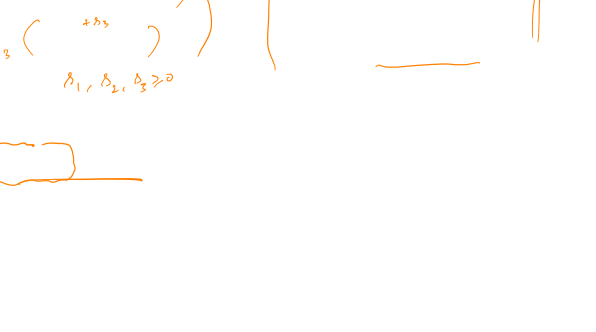 +s₃
3 ( )
s₁, s₂, s₃ ≥ 0